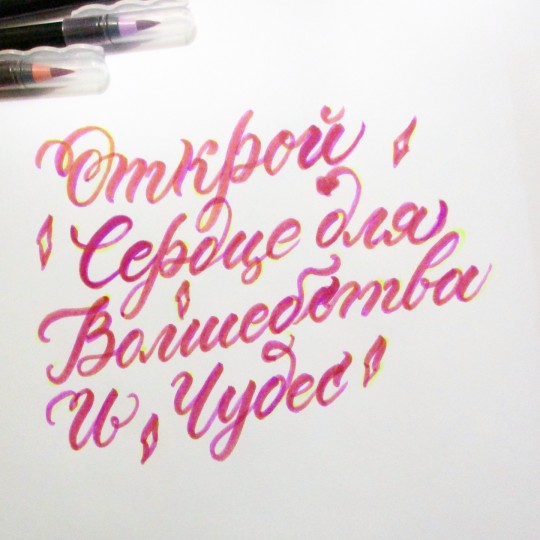 Открой
Сердце для
Волшебства
И Чудес